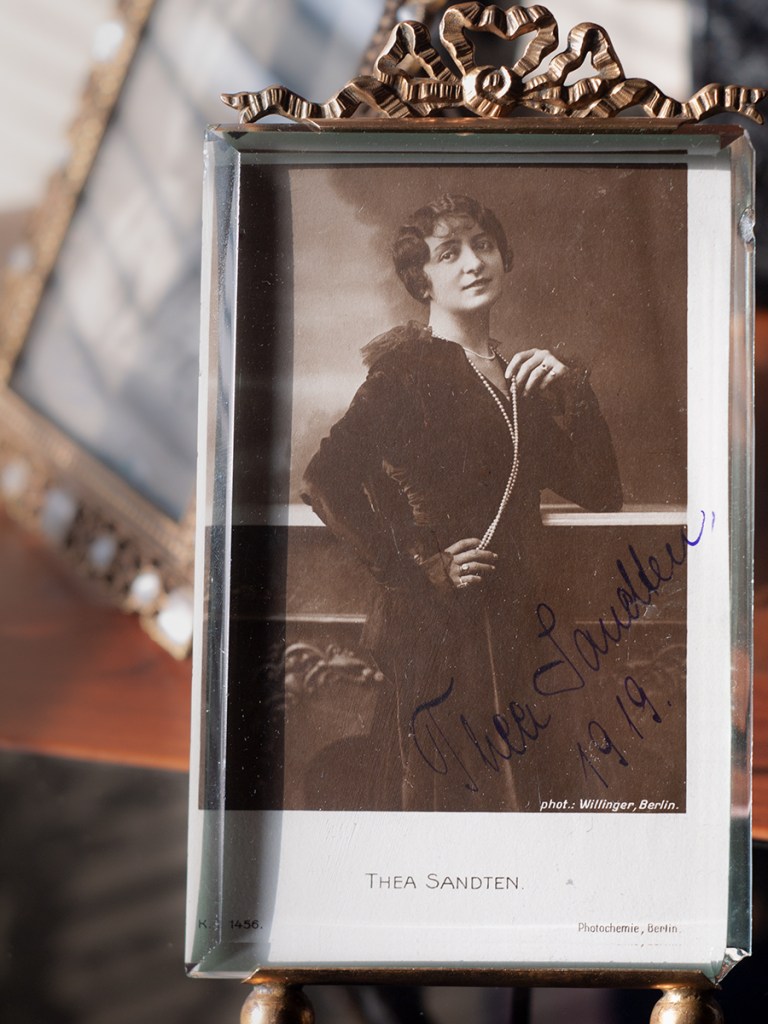 Thea Sandten
1919.
phot.: Willinger, Berlin.
THEA SANDTEN.
K. 1456.
Photochemie, Berlin.